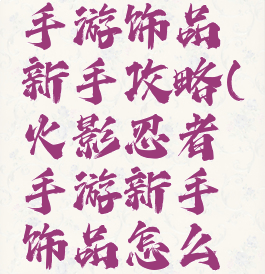 手游饰品
新手攻略(
火影忍者
手游新手
饰品怎么